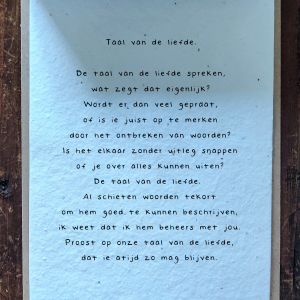 Taal van de liefde.
De taal van de liefde spreken,
wat zegt dat eigenlijk?
Wordt er dan veel gepraat,
of is ie juist op te merken
door het ontbreken van woorden?
Is het elkaar zonder uitleg snappen
of je over alles kunnen uiten?
De taal van de liefde.
Al schieten woorden tekort
om hem goed te kunnen beschrijven,
ik weet dat ik hem beheers met jou.
Proost op onze taal van de liefde,
dat ie altijd zo mag blijven.